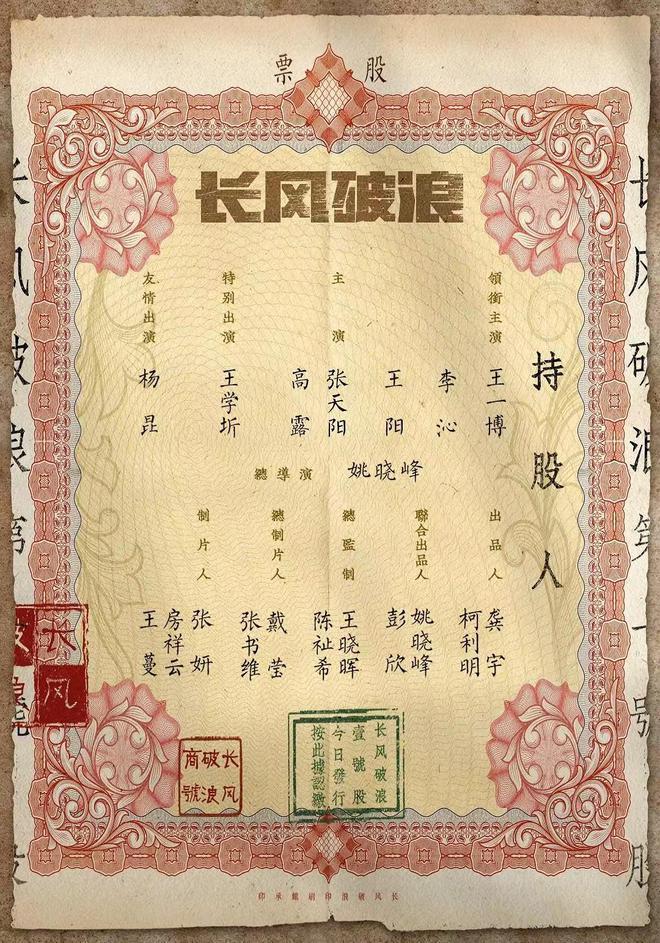 股票
长风破浪
持股人
領銜主演
王一博
李沁
主演
王阳
张天阳
高露
特别出演
王学圻
友情出演
杨昆
總導演
姚晓峰
出品人
龚宇
柯利明
聯合出品人
姚晓峰
彭欣
總監制
王晓晖
陈祉希
總制片人
戴莹
张书维
制片人
张妍
房祥云
王蔓
长风破浪
壹號股
今日發行
按此據認繳
长风
破浪
商號
长风破浪第一號股
长风破浪第
长风
破浪
长风破浪印刷館承印